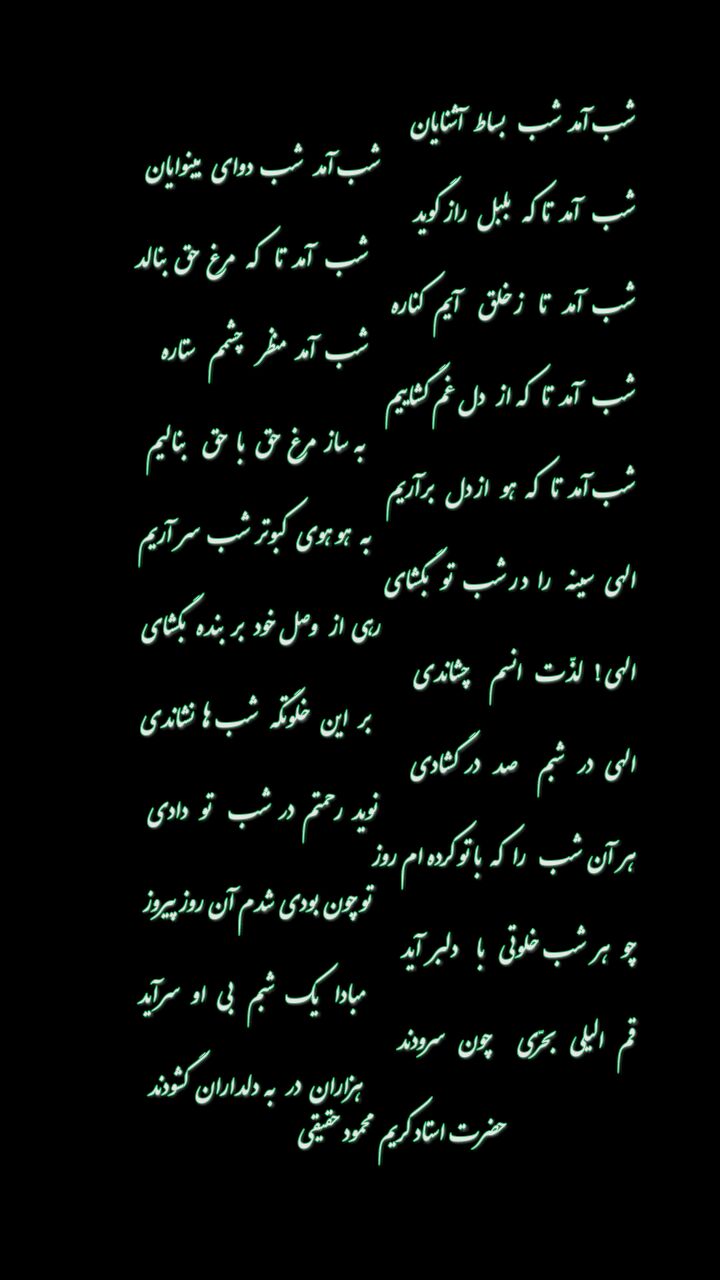 شب آمد شب بساط آشنایان
شب آمد شب دوای بینوایان
شب آمد تا که بلبل راز گوید
شب آمد تا که مرغ حق بنالد
شب آمد تا ز خلق آیم کناره
شب آمد منظر چشمم ستاره
شب آمد تا که از دل غم گشاییم
به ساز مرغ حق با حق بنالیم
شب آمد تا که هو از دل برآریم
به هو هوی کبوتر شب سر آریم
الهی سینه را در شب تو بگشای
رهی از وصل خود بر بنده بگشای
الهی! لذّت انسم چشاندی
بر این خلوتگه شب ها نشاندی
الهی در شبم صد در گشادی
نوید رحمتم در شب تو دادی
هر آن شب را که با تو کرده ام روز
تو چون بودی شدم آن روز پیروز
چو هر شب خلوتی با دلبر آید
مبادا یک شبم بی او سر آید
قم الیلی بحرّی چون سرودند
هزاران در به دلداران گشودند
حضرت استاد کریم محمود حقیقی